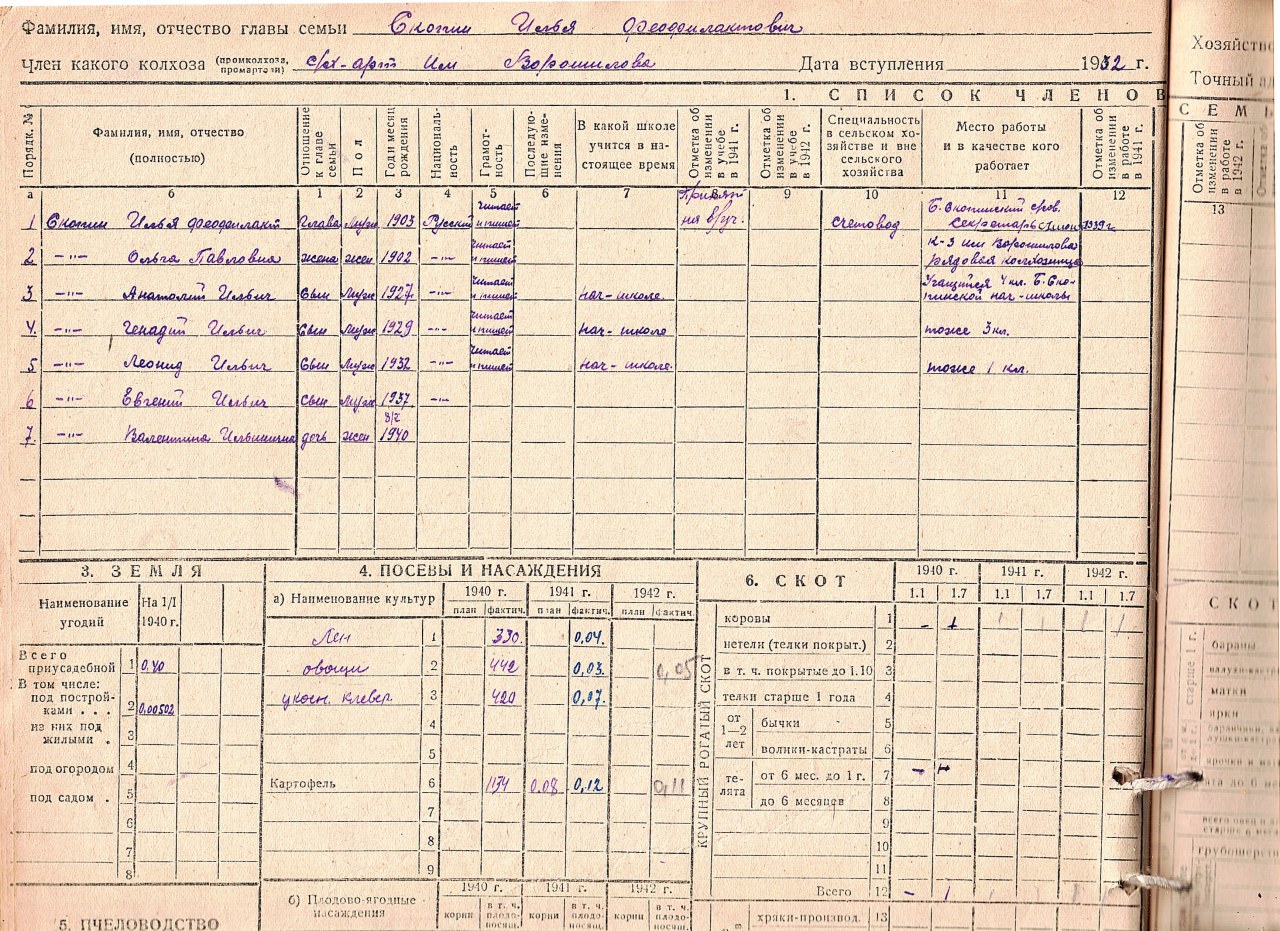 Фамилия, имя, отчество главы семьи Скопин Илья Феофилактович
Член какого колхоза (промколхоза, промартели) с/х-арт им Ворошилова Дата вступления 1932 г.
Хозяйство
Точный
1. СПИСОК ЧЛЕНОВ
СЕМЬ
Порядк. № Фамилия, имя, отчество (полностью) Отношение к главе семьи Пол Год и месяц рождения Националь- ность Грамот- ность Последую- щие изме- нения В какой школе учится в на- стоящее время Отметка об изменении в учебе в 1941 г. Отметка об изменении в учебе в 1942 г. Специальность в сельском хо- зяйстве и вне сельского хозяйства Место работы и в качестве кого работает Отметка об изменении в работе в 1941 г. Отметка об изменении в работе в 1942 г.
а б 1 2 3 4 5 6 7 9 10 11 12 13
1 Скопин Илья Феофилакт Глава Муж 1903 Русский читает и пишет счетовод Б. Скопинский Секретарь 1939 г
2 -"- Ольга Павловна жена жен 1902 -"- читает и пишет К-з им Ворошилова рядовая колхозница
3 -"- Анатолий Ильич Сын Муж 1927 -"- читает и пишет нач-школе Учащийся 4 кл. Б. Ско- пинской нач-школы
4. -"- Генадий Ильич Сын Муж 1929 -"- читает и пишет нач-школе тоже 3 кл.
5 -"- Леонид Ильич Сын Муж 1932 -"- читает и пишет нач-школе. тоже 1 кл.
6 -"- Евгений Ильич Сын Муж 1937 -"-
7. -"- Валентина Ильинична дочь жен 1940
3. ЗЕМЛЯ
Наименование угодий На 1/I 1940 г.
Всего приусадебной 1 0,40
В том числе:
под построй- ками . . . 2 0.00502
из них под жилыми . 3
под огородом 4
под садом . 5
6
7
8
5. ПЧЕЛОВОДСТВО
4. ПОСЕВЫ И НАСАЖДЕНИЯ
а) Наименование культур 1940 г. 1941 г. 1942 г.
план фактич. план фактич. план фактич.
Лен 1 330. 0,04.
овощи 2 442 0,03. 0,05
укосн. клевер. 3 420 0,07.
4
5
Картофель 6 1134 0.08 0,12 0,11
7
8
9
б) Плодово-ягодные насаждения 1940 г. 1941 г. 1942 г.
корни в т. ч. плодо- носящ. корни в т. ч. плодо- носящ. корни в т. ч. плодо- носящ.
6. СКОТ
1940 г. 1941 г. 1942 г.
1.1 1.7 1.1 1.7 1.1 1.7
КРУПНЫЙ РОГАТЫЙ СКОТ
коровы 1 - 1 1 1 1 1
нетели (телки покрыт.) 2
в т. ч. покрытые до 1.10 3
телки старше 1 года 4
от 1—2 лет бычки 5
волики-кастраты 6
те- лята от 6 мес. до 1 г. 7
до 6 месяцев 8
9
10
11
Всего 12 - 1
хряки-производ. 13
СКОТ
старше 1 г.
бараны
матки
ярки